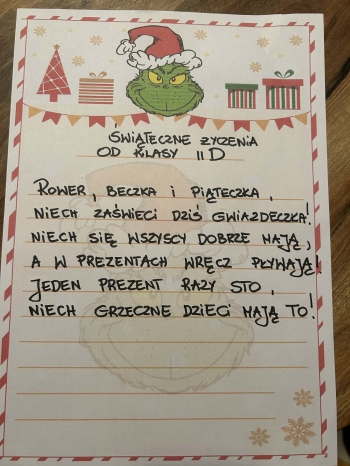 ŚWIĄTECZNE ŻYCZENIA
OD KLASY II D
ROWER, BECZKA I PIĄTECZKA,
NIECH ZAŚWIECI DZIŚ GWIAZDECZKA!
NIECH SIĘ WSZYSCY DOBRZE MAJĄ,
A W PREZENTACH WRĘCZ PŁYWAJĄ!
JEDEN PREZENT RAZY STO,
NIECH GRZECZNE DZIECI MAJĄ TO!